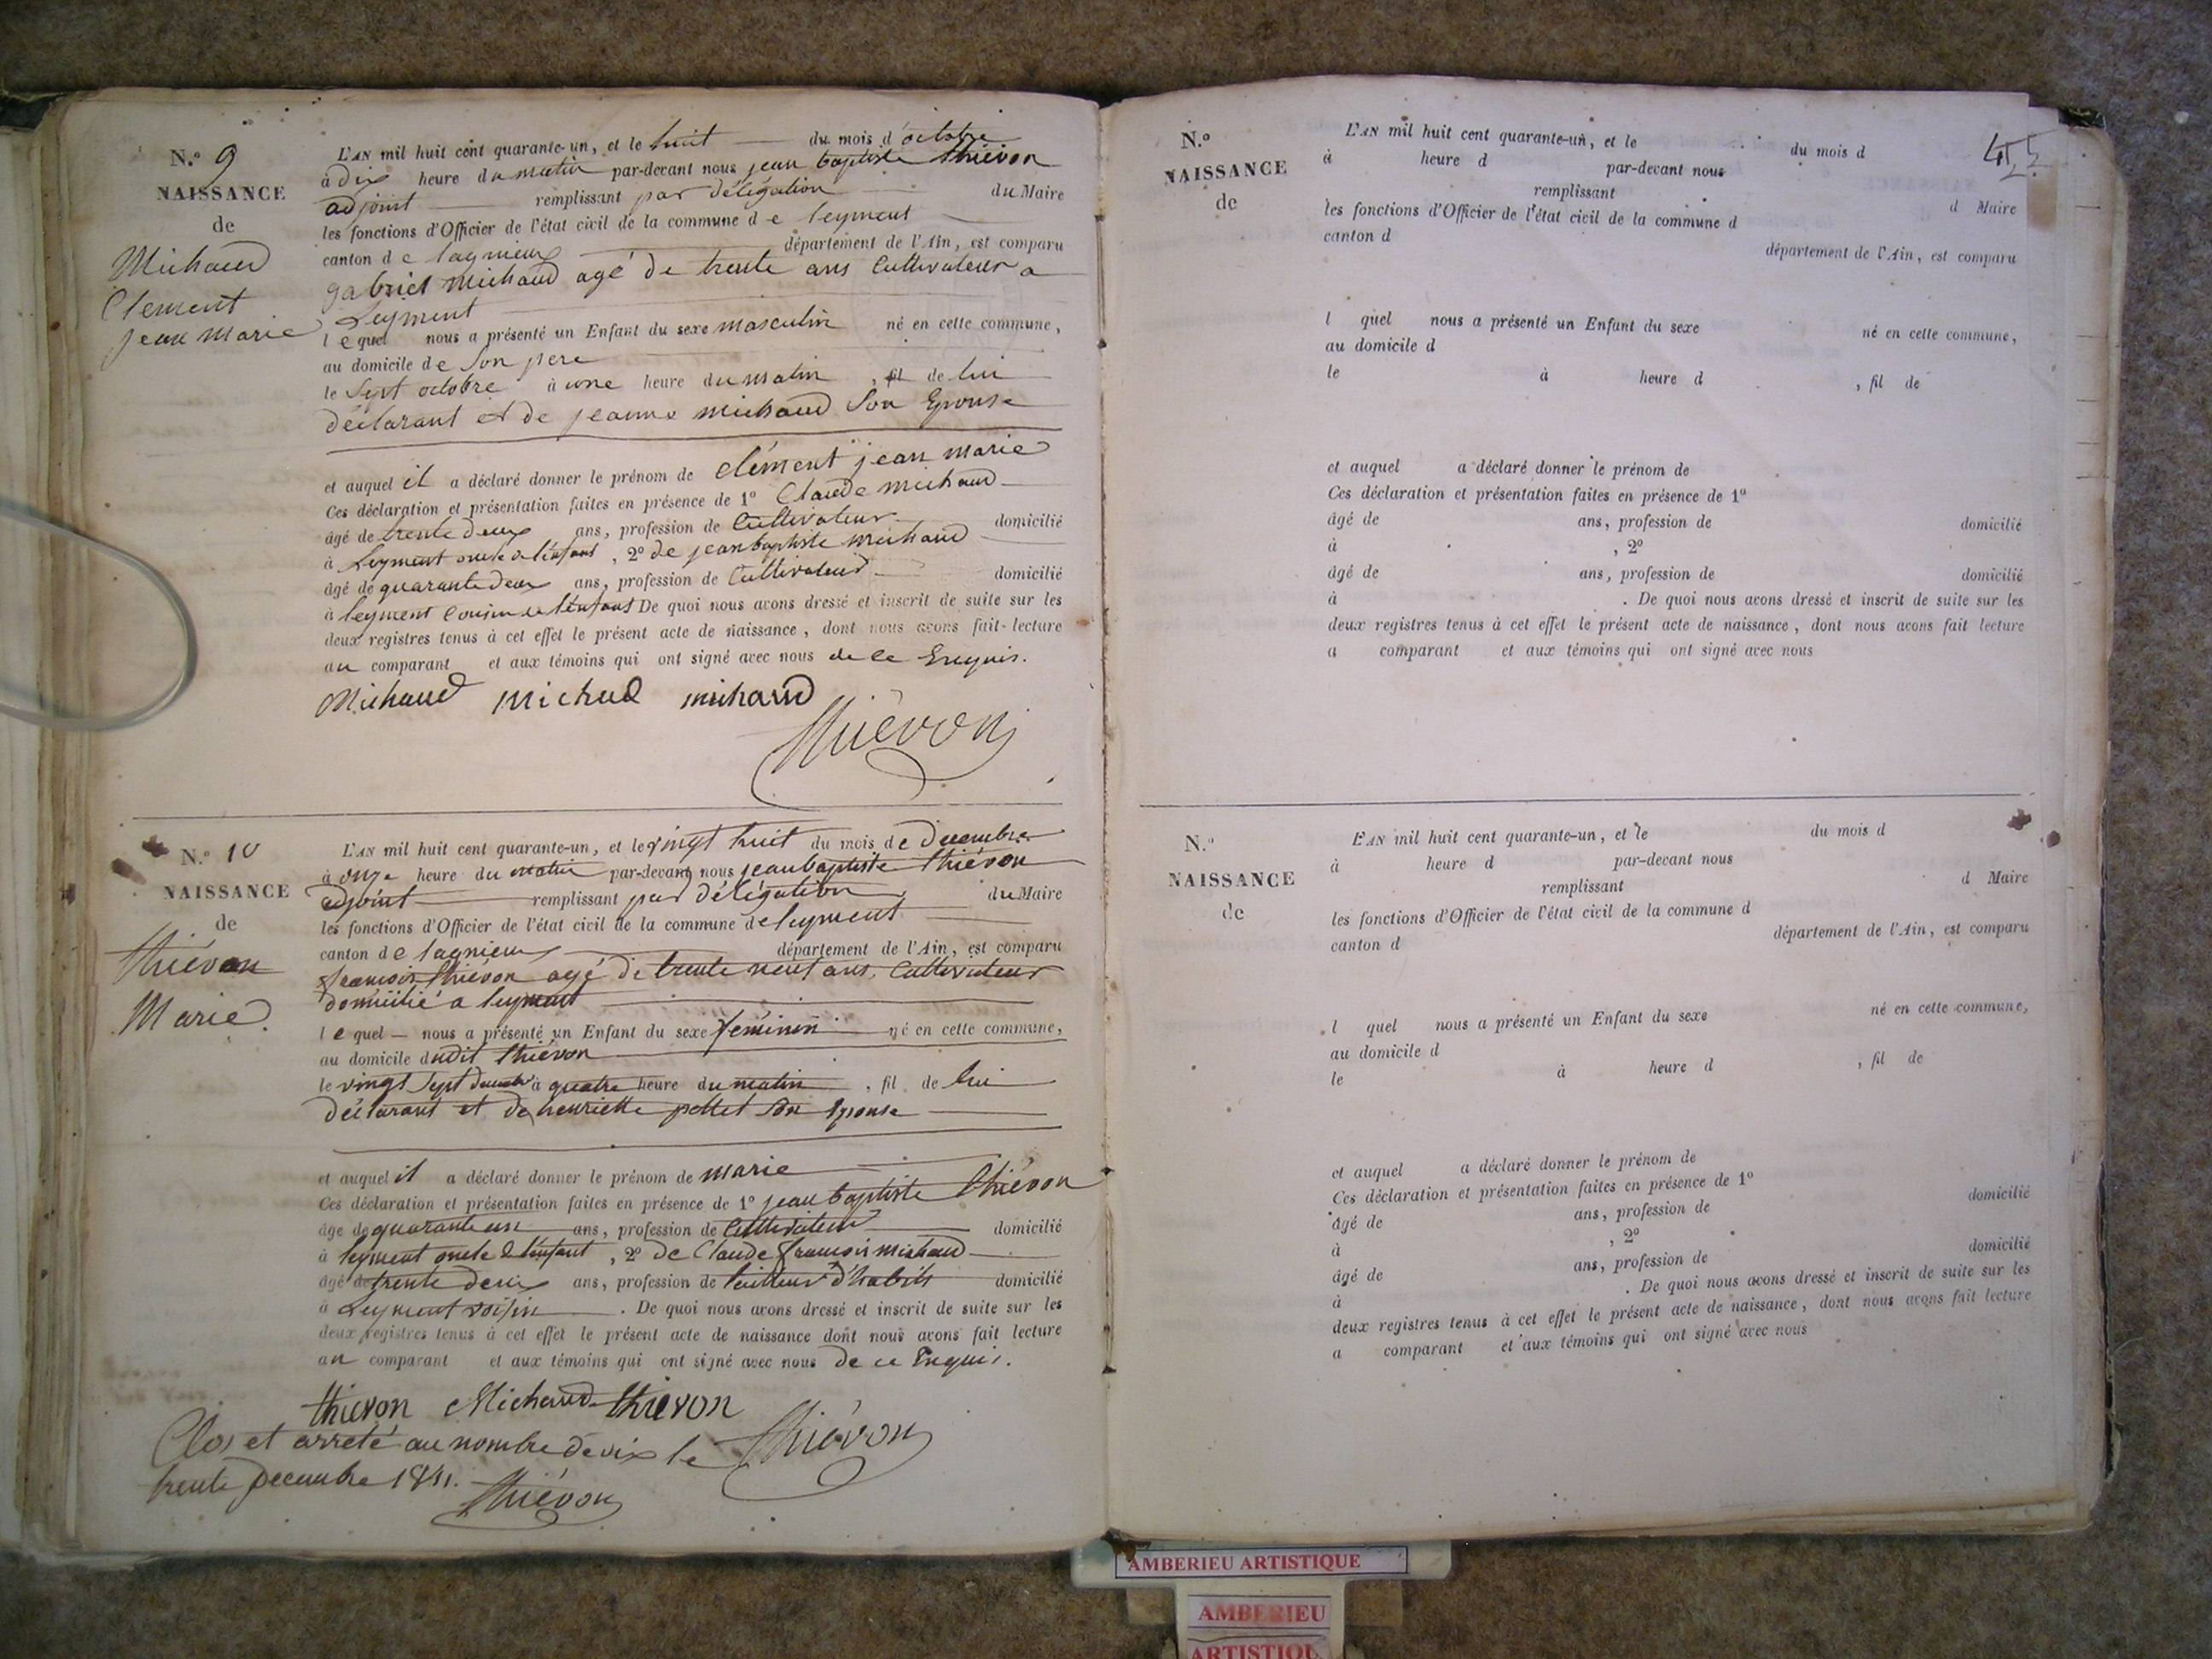 N.º 9
NAISSANCE
de
Michaud
Clement
jean marie
L'AN mil huit cent quarante-un, et le huit du mois d'octobre
à dix heure du matin par-devant nous jean baptiste thiévon
adjoint remplissant par délégation du Maire
les fonctions d'Officier de l'état civil de la commune de leyment
canton de lagnieux département de l'Ain, est comparu
gabriel michaud agé de trente ans Cultivateur a
Leyment
lequel nous a présenté un Enfant du sexe masculin né en cette commune,
au domicile de Son pere
le Sept octobre à une heure du matin , fil de lui
déclarant et de jeanne michaud Son Epouse
et auquel il a déclaré donner le prénom de clément jean marie
Ces déclaration et présentation faites en présence de 1º Claude michaud
âgé de trente deux ans, profession de Cultivateur domicilié
à Leyment oncle de l'enfant , 2º de jean baptiste michaud
âgé de quarante deux ans, profession de Cultivateur domicilié
à leyment Cousin de l'enfant De quoi nous avons dressé et inscrit de suite sur les
deux registres tenus à cet effet le présent acte de naissance, dont nous avons fait lecture
au comparant et aux témoins qui ont signé avec nous de ce Enquis.
Michaud michud michaud
Thiévon
N.º 10
NAISSANCE
de
thiévon
Marie.
L'AN mil huit cent quarante-un, et le vingt huit du mois de Decembre
à onze heure du matin par-devant nous jean baptiste thiévon
adjoint remplissant par délégation du Maire
les fonctions d'Officier de l'état civil de la commune de leyment
canton de lagnieux département de l'Ain, est comparu
francois thiévon agé de trente neuf ans, Cultivateur
domicilié a leyment
lequel nous a présenté un Enfant du sexe féminin né en cette commune,
au domicile dudit thiévon
le vingt Sept Decembre à quatre heure du matin , fil de lui
déclarant et de henriette pottet son Epouse
et auquel il a déclaré donner le prénom de marie
Ces déclaration et présentation faites en présence de 1º jean baptiste thiévon
âgé de quarante un ans, profession de Cultivateur domicilié
à leyment oncle de l'enfant , 2º de Claude françois michaud
âgé de trente deux ans, profession de tailleur d'habits domicilié
à Leyment voisin . De quoi nous avons dressé et inscrit de suite sur les
deux registres tenus à cet effet le présent acte de naissance dont nous avons fait lecture
au comparant et aux témoins qui ont signé avec nous de ce Enquis.
thievon Michaud thievon
Clos et arreté au nombre de dix le Thiévon
trente Decembre 1841. Thiévon
N.º
NAISSANCE
de
L'AN mil huit cent quarante-un, et le du mois d
à heure d par-devant nous
remplissant d Maire
les fonctions d'Officier de l'état civil de la commune d
canton d département de l'Ain, est comparu
l quel nous a présenté un Enfant du sexe né en cette commune,
au domicile d
le à heure d , fil de
et auquel a déclaré donner le prénom de
Ces déclaration et présentation faites en présence de 1º
âgé de ans, profession de domicilié
à , 2º
âgé de ans, profession de domicilié
à . De quoi nous avons dressé et inscrit de suite sur les
deux registres tenus à cet effet le présent acte de naissance, dont nous avons fait lecture
a comparant et aux témoins qui ont signé avec nous
N.º
NAISSANCE
de
L'AN mil huit cent quarante-un, et le du mois d
à heure d par-devant nous
remplissant d Maire
les fonctions d'Officier de l'état civil de la commune d
canton d département de l'Ain, est comparu
l quel nous a présenté un Enfant du sexe né en cette commune,
au domicile d
le à heure d , fil de
et auquel a déclaré donner le prénom de
Ces déclaration et présentation faites en présence de 1º
âgé de ans, profession de domicilié
à , 2º
âgé de ans, profession de domicilié
à . De quoi nous avons dressé et inscrit de suite sur les
deux registres tenus à cet effet le présent acte de naissance, dont nous avons fait lecture
a comparant et aux témoins qui ont signé avec nous
AMBERIEU ARTISTIQUE
AMBERIEU
ARTISTIQU